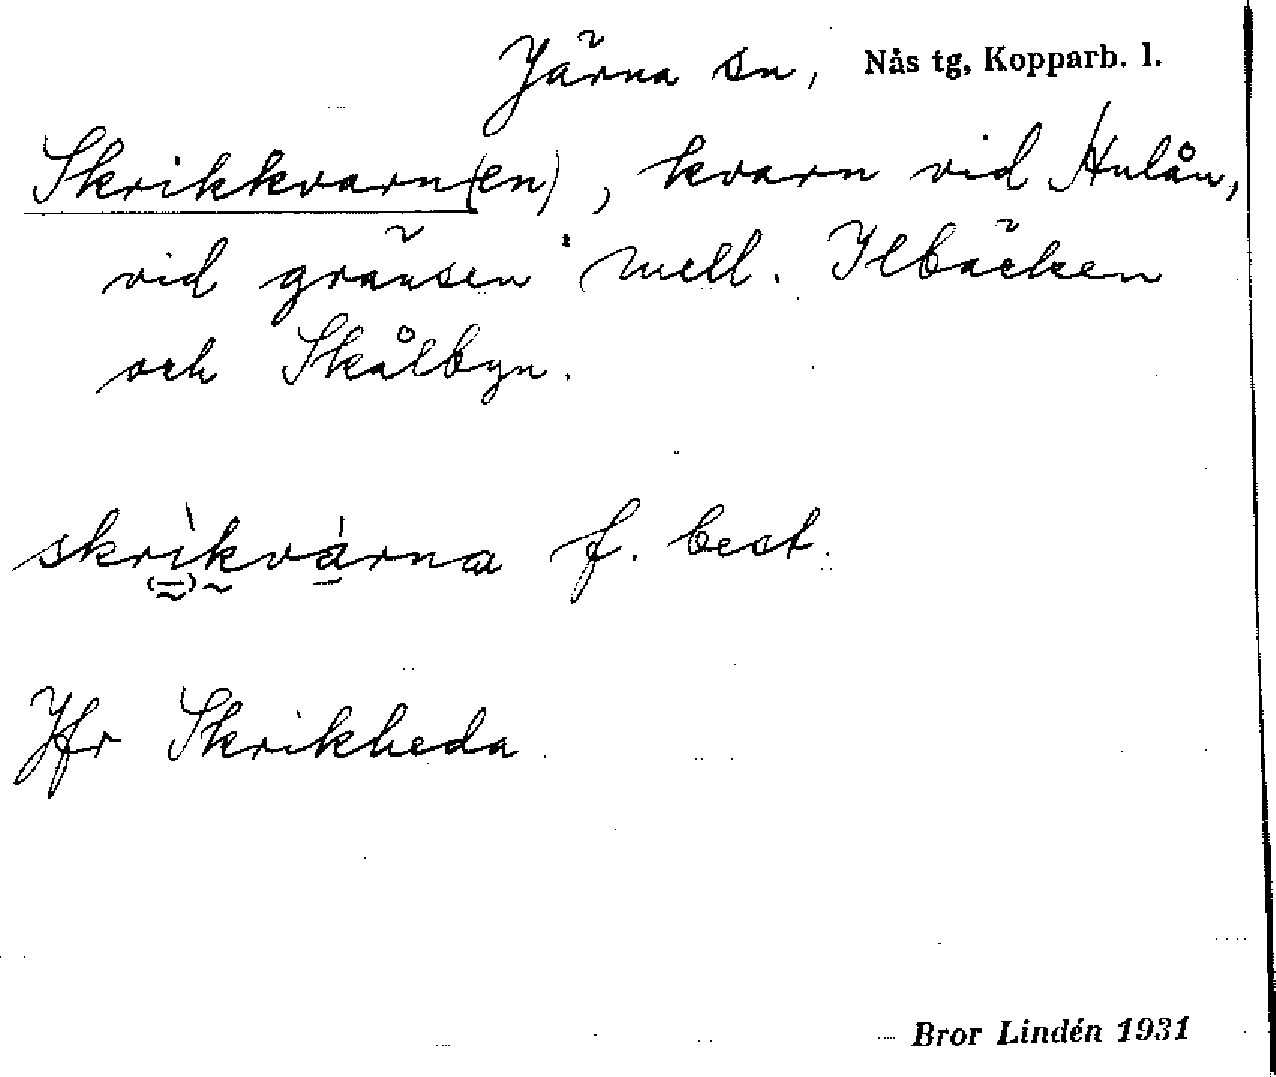 Järna sn, Nås tg, Kopparb. l.
Skrikkvarn(en), kvarn vid Hulån,
vid gränsen mell. Ilbäcken
och Skålbyn.
skrìkvárna f. best.
Jfr Skrikheda.
Bror Lindén 1931